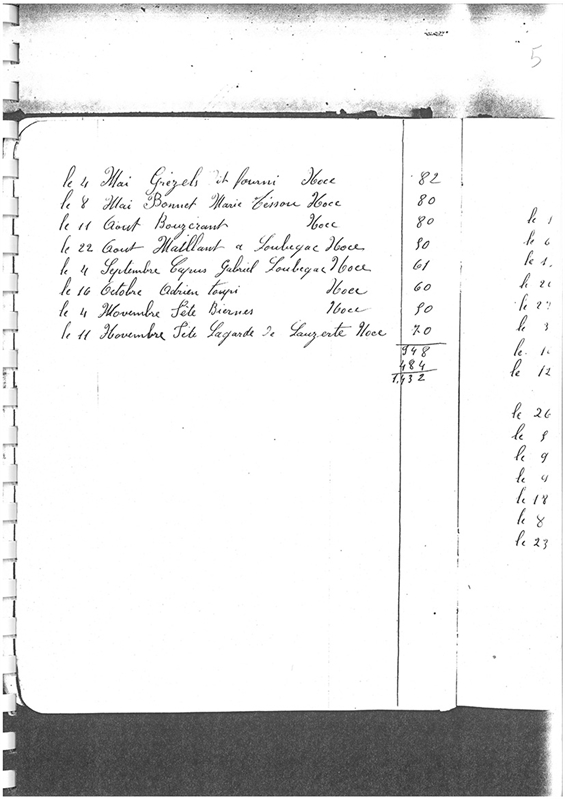 5
le 4 Mai Grézels dit fourni Noce 82
le 8 Mai Bonnet Marie Tissou Noce 80
le 11 Aout Bouzerant Noce 80
le 22 Aout Maillant a Loubegac Noce 90
le 4 Septembre Capus Gabriel Loubegac Noce 61
le 16 Octobre Adrien toupi Noce 60
le 4 Novembre Fête Biernes Noce 90
le 11 Novembre Fete Lagarde de Lauzerte Noce 70
948
484
1.432
le 1
le 6
le 1.
le 20
le 27
le 3
le 10
le 12
le 26
le 9
le 9
le 4
le 18
le 8
le 23